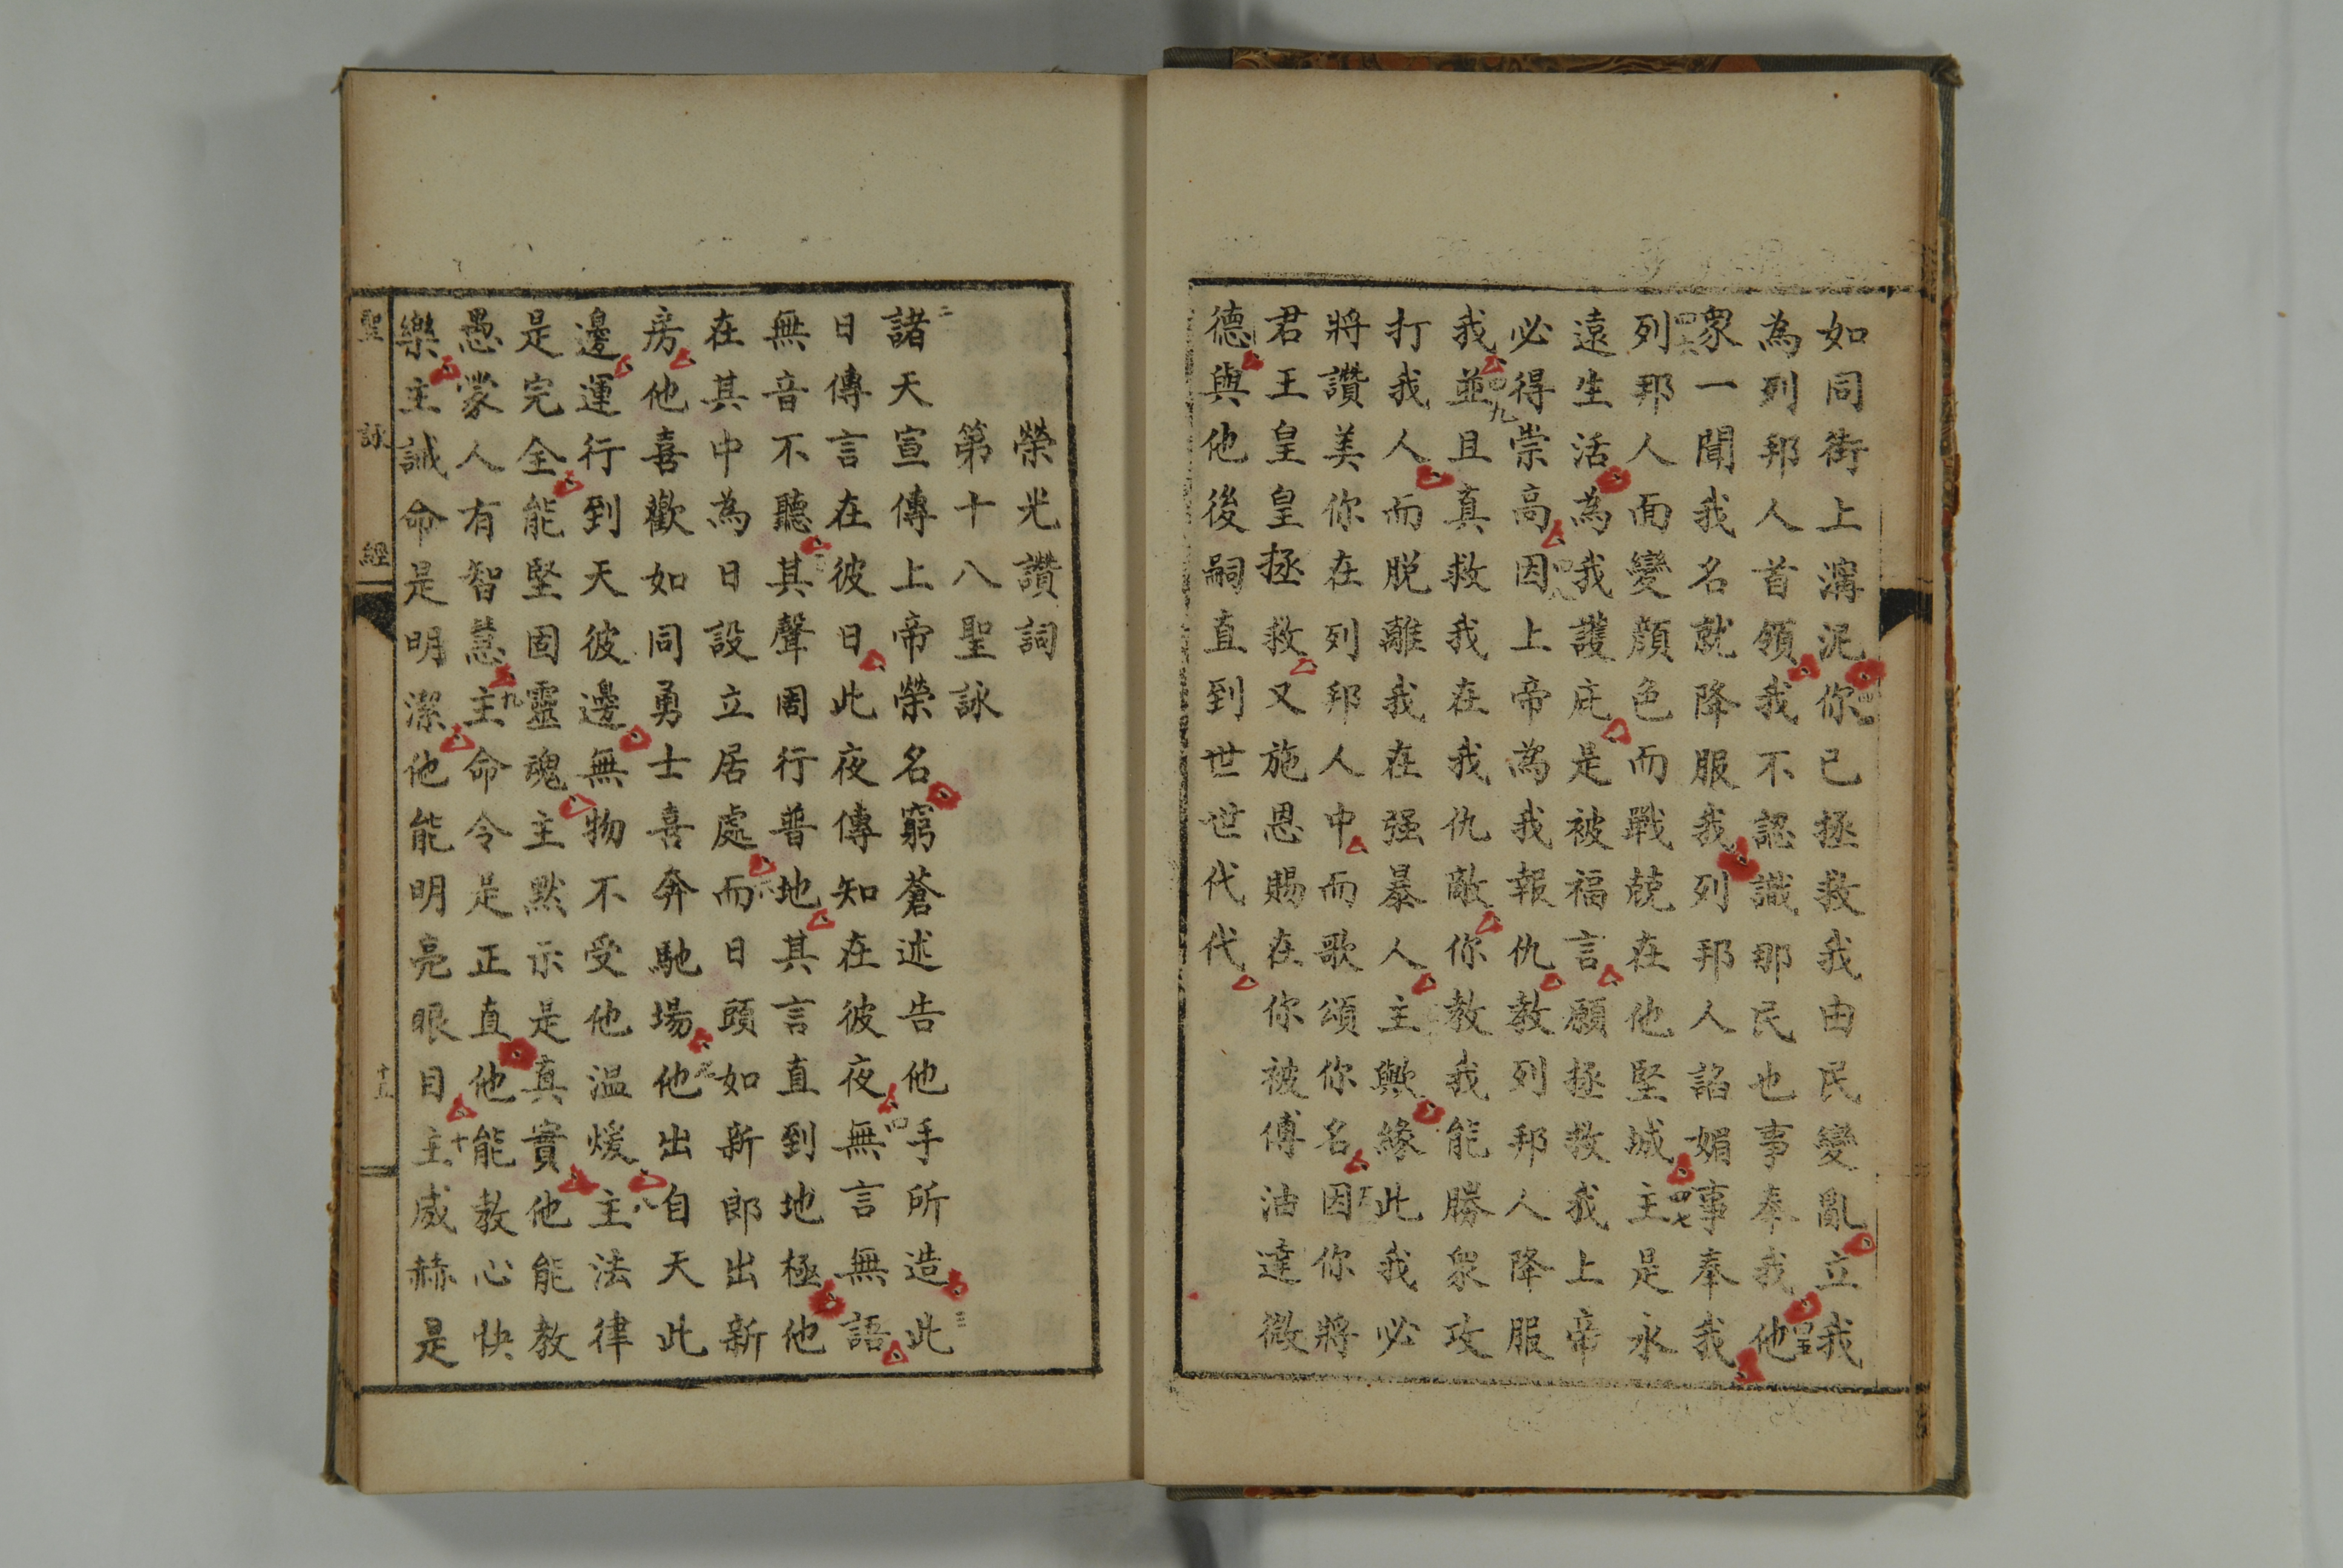 如同街上溝泥你已拯救我由民變亂立我
為列邦人首領我不認識那民也事奉我他
衆一聞我名就降服我列邦人諂媚事奉我
列邦人面變顔色而戰兢在他堅城主是永
遠生活為我護庇是被福言願拯救我上帝
必得崇高因上帝為我報仇教列邦人降服
我並且真救我在我仇敵你教我能勝衆攻
打我人而脱離我在强暴人主歟緣此我必
將讚美你在列邦人中而歌頌你名因你將
君王皇皇拯救又施恩賜在你被傅油達微
德與他後嗣直到世世代代
榮光讚詞
第十八聖詠
諸天宣傳上帝榮名窮蒼述告他手所造此
日傳言在彼日此夜傳知在彼夜無言無語
無音不聽其聲周行普地其言直到地極他
在其中為日設立居處而日頭如新郎出新
房他喜歡如同勇士喜奔馳場他出自天此
邊運行到天彼邊無物不受他温煖主法律
是完全能堅固靈魂主默示是真實他能教
愚蒙人有智慧主命令是正直他能教心快
樂主誡命是明潔他能明亮眼目主威赫是
聖詠經
十五